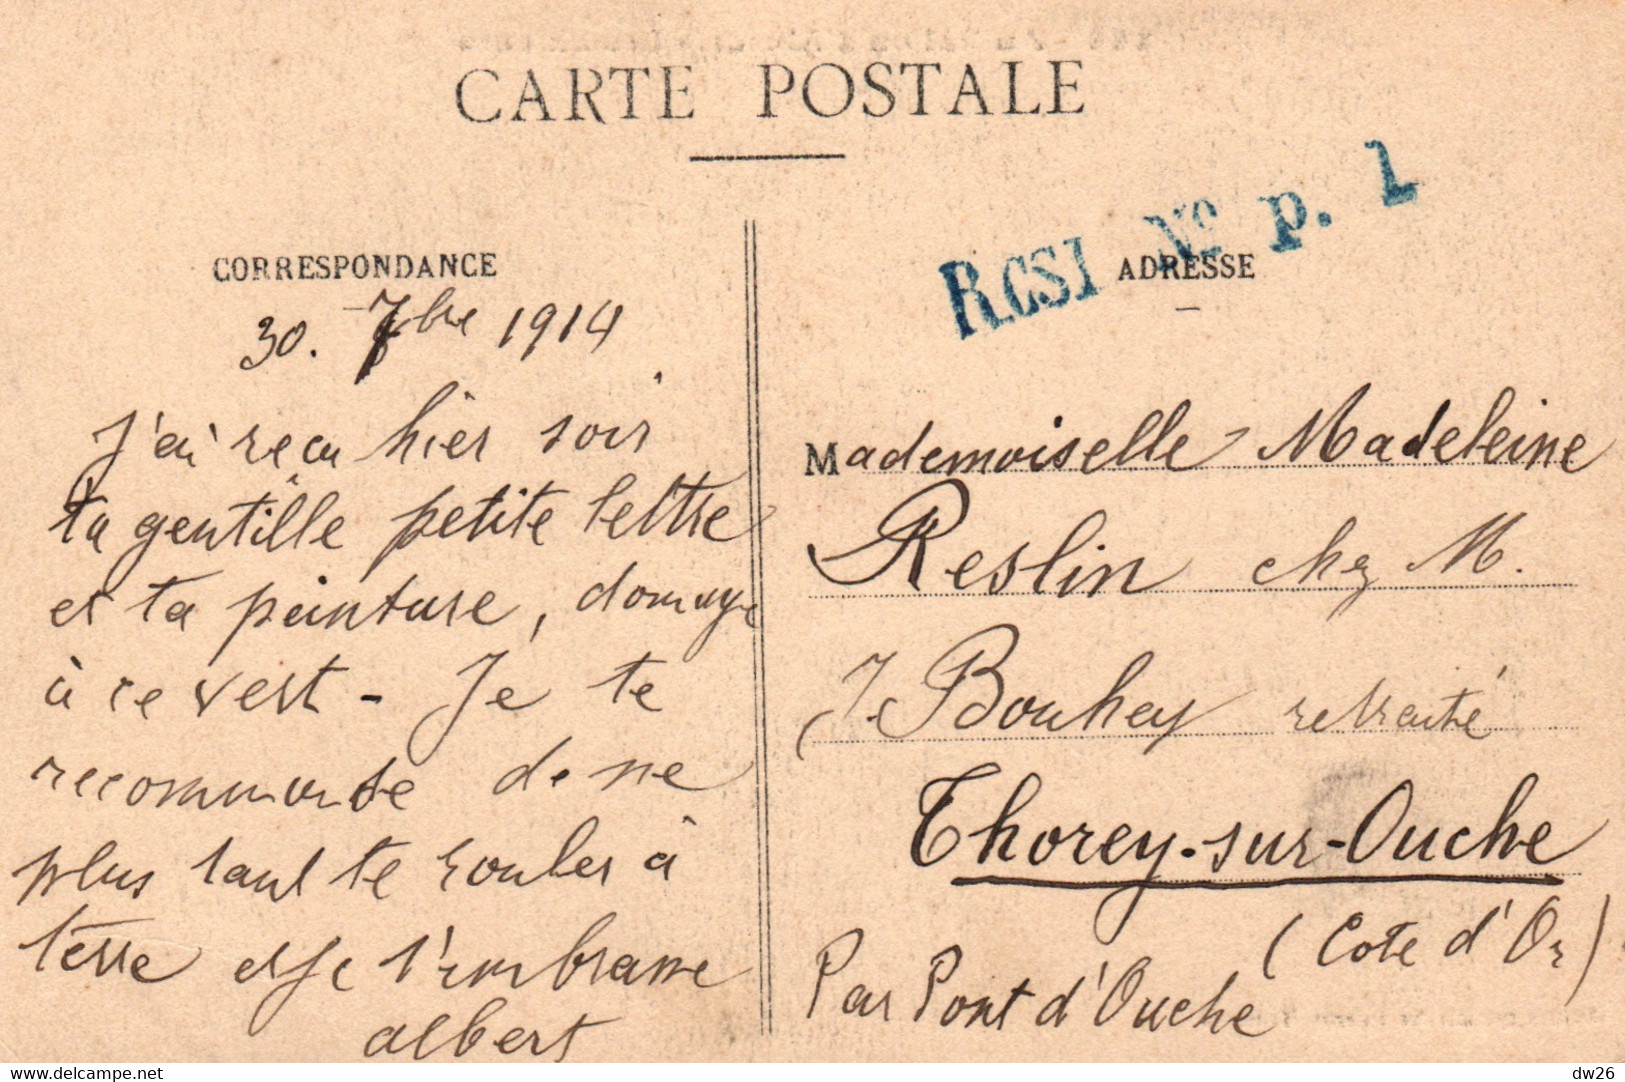 CARTE POSTALE
RCSI Nº p. 1
CORRESPONDANCE
30. 7bre 1914
J'ai reçu hier soir
ta gentille petite lettre
et ta peinture, domage
à ce vert - Je te
recommande de ne
plus tant te rouler à
terre et je t'embrasse
albert
ADRESSE
Mademoiselle Madeleine
Reslin chez M.
Bouhey retraité
Thorey-sur-Ouche
(Cote d'Or)
Par Pont d'Ouche
https://www.delcampe.net
dw26